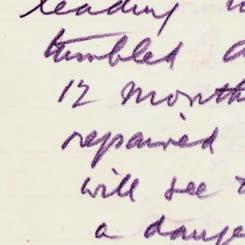 leading
tumbled
12 month
repaired
will see
a dange